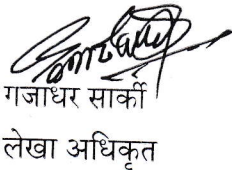 गजाधर सार्की
लेखा अधिकृत